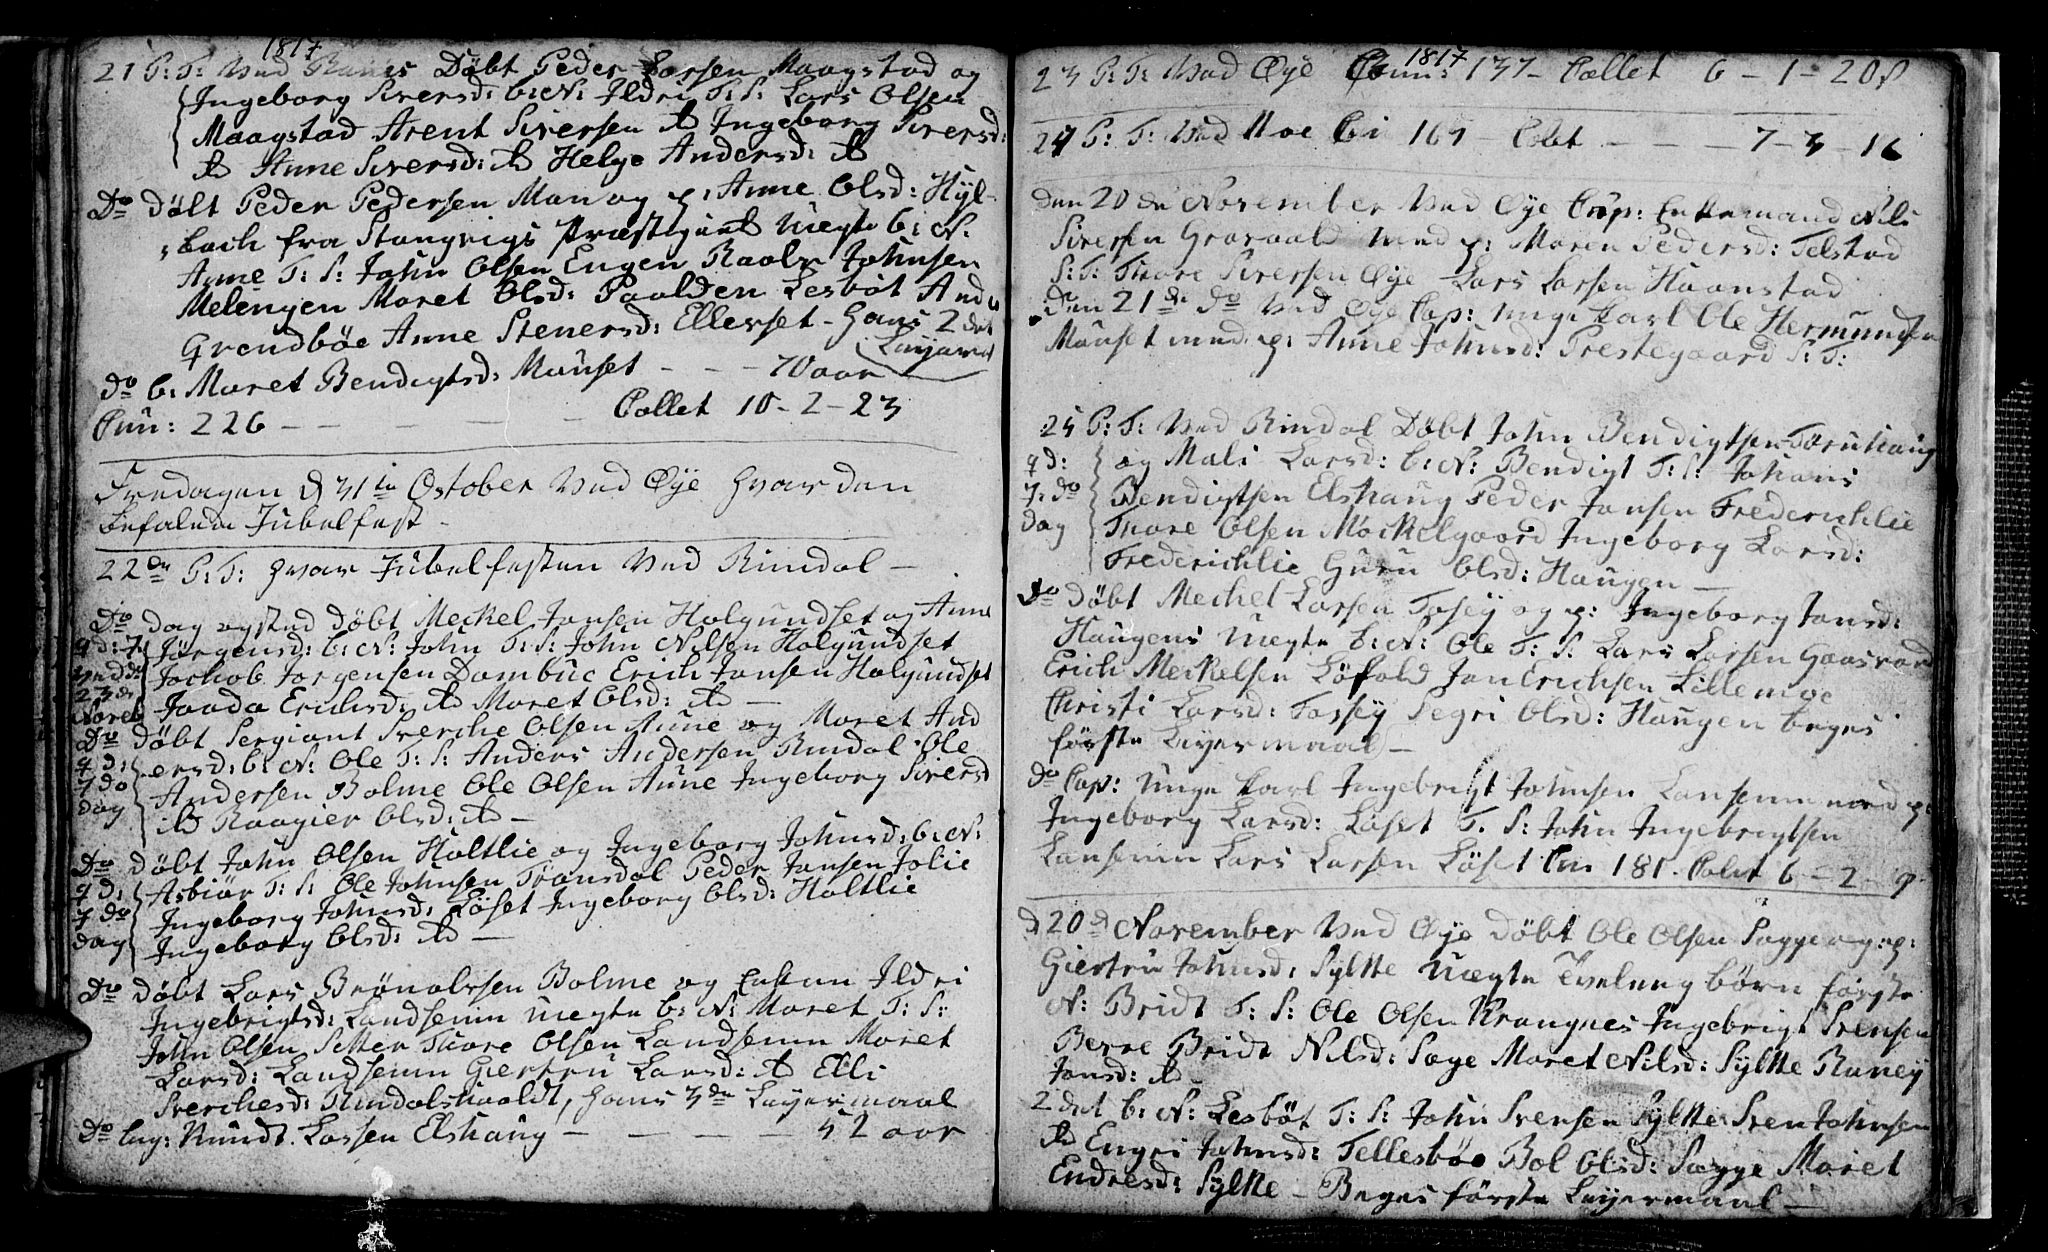 1817
21 P: T: Ved Ranes Döbt Peder Larsen Maagstad og
Ingeborg Siversd: b: N: Ildri T: S: Lars Olsen
Maagstad Arent Siversen ib Ingeborg Siversd:
ib Anne Siversd: ib Helge Andersd: ib
Do Döbt Peder Pedersen Mano og p: Anne Olsd: Hyl-
bach fra Stangvigs Præstegield Uægte b: N:
Anne T: S: John Olsen Engen Raaln Johnsen
Melengen Maret Olsd: Paalden Lesböt And
Grendböe Anne Stenersd: Ellevset - Hans 2det
Leyerm
do b: Maret Bendigtsd: Mauset - - - 70 aar
Cmu: 226 - - - - Collet 10 - 2 - 23
Fredagen d 31te October Ved Øye Hvar den
befalede Jubelfest -
22de P: T: Hvar Jubelfesten Ved Rindal -
Do Dag ogsaa Döbt Meckel Jansen Holgundset og Anne
9 d: 7: Jörgensd: b: N: John T: S: John Nilsen Holgundset
Ved d: Jachob Jorgensen Dambue Erich Jansen Holgundset
23de Jaada Erichsd: ib Maret Olsd: ib -
Noveb
Do Döbt Sergiant Sverche Olsen Aune og Maret And
9 d: ersd: b: N: Ole T: S: Anders Andersen Rindal Ole
7 do Andersen Bolme Ole Olsen Aune Ingeborg Siversd
dag ib Raagier Olsd: ib -
Do Döbt John Olsen Holtlie og Ingeborg Johnsd: b: N:
9 d: Asbiör T: S: Ole Johnsen Transdal Peder Jansen Jolie
7 do Ingeborg Johnsd: Löset Ingeborg Olsd: Holtlie
dag Ingeborg Olsd: ib -
Do Döbt Lars Brönalvsen Bolme og Enken Ildri
Ingebrigtsd: Landsemm Uægte b: N: Maret T: S:
John Olsen Setter Tuore Olsen Landsemm Maret
Larsd: Landsemm Giertru Larsd: ib Elli
Sverchesd: Rindalskaaldt, hans 3de Leyermaal
Do beg: Knudt Larsen Elshaug - - - - 52 aar
1817
23 P: T: Ved Øye Comm: 137 - Collet 6 - 1 - 20 s
24 P: T: Ved Moe Co 167 - Colet - - - 7 - 3 - 16
den 20de November Ved Øye Cop: Enkemand Nils
Siversen Grasvald med p: Maren Pedersd: Telstad
S: T: Tuore Siversen Øye Lars Larsen Haanstad
den 21de do Ved Øye Cop: unge karl Ole Hermundsen
Mauset med p: Anne Johnsd: Prestegaard S: T:
25 P: T: Ved Rindal Döbt John Bendigtsen Tørushaug
9 d: og Mali Larsd: b: N: Bendigt T: S: Johans
7: do Bendigtsen Elshaug Peder Jansen Frederichlie
dag Tuore Olsen Möckelgaard Ingeborg Larsd:
Frederichlie Guru Olsd: Haugen -
do Döbt Meckel Larsen Tosey og p: Ingeborg Jansd:
Haugens Uægte b: N: Ole T: S: Lars Larsen Gaasvard
Erich Meckelsen Löfald Jan Erichsen Lillemoe
Christi Larsd: Tossey Segri Olsd: Haugen beges
förste Leyermaal -
do Cop: unge karl Ingebrigt Johnsen Lansemm med p:
Ingeborg Larsd: Löset T: S: John Ingebrigtsen
Lansemm Lars Larsen Löset Cm 181. Colet 6 - 2 - 9
d 20de November Ved Øye Döbt Ole Olsen Sagge og p:
Giertru Johnsd: Sylte Uægte Tvelung börn förste
N: Bridt T: S: Ole Olsen Krangnes Ingebrigt Svensen
Berre Bridt Nilsd: Sage Maret Nilsd: Sylte Raney
Jonsd: ib
2det b: N: Lesböt T: S: John Svensen Sylte Sven Johnsen
ib Engri Johnsd: Telleböe Bol Olsd: Sagge Maret
Endresd: Sylte - Beges förste Leyermaal -